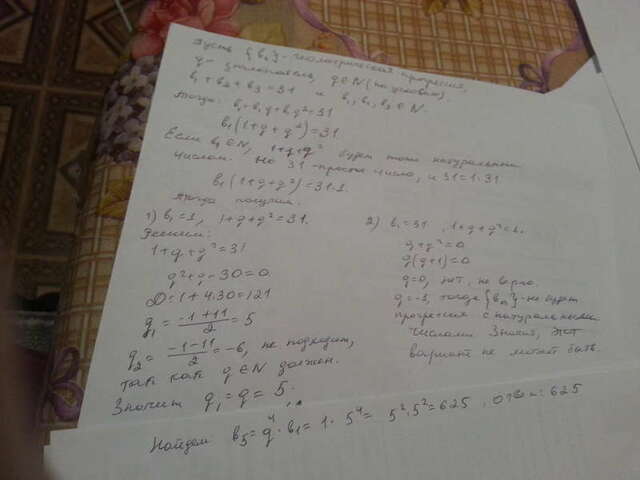 Пусть {bₙ} - геометрическая прогрессия,
q - знаменатель, q∈N (по условию).
b₁+b₂+b₃=31 и b₁, b₂, b₃∈N.
Тогда: b₁+b₁q+b₁q²=31
b₁(1+q+q²)=31.
Если b₁∈N, 1+q+q² будет тоже натуральным
числом. Но 31 - простое число, и 31=1·31
b₁(1+q+q²)=31·1.
Тогда получим.
1) b₁=1, 1+q+q²=31.
Решим:
1+q+q²=31
q²+q-30=0
D=1+4·30=121
q₁=(-1+11)/2=5
q₂=(-1-11)/2=-6, не подходит,
так как q∈N должен.
Значит q₁=q=5.
2) b₁=31, 1+q+q²=1.
q+q²=0
q(q+1)=0
q=0, нет, не верно.
q=-1, тогда {bₙ} - не будет
прогрессия с натуральными
числами. Значит, этот
вариант не может быть
Найдем b₅=q⁴·b₁=1·5⁴=5²·5²=625, ответ: 625